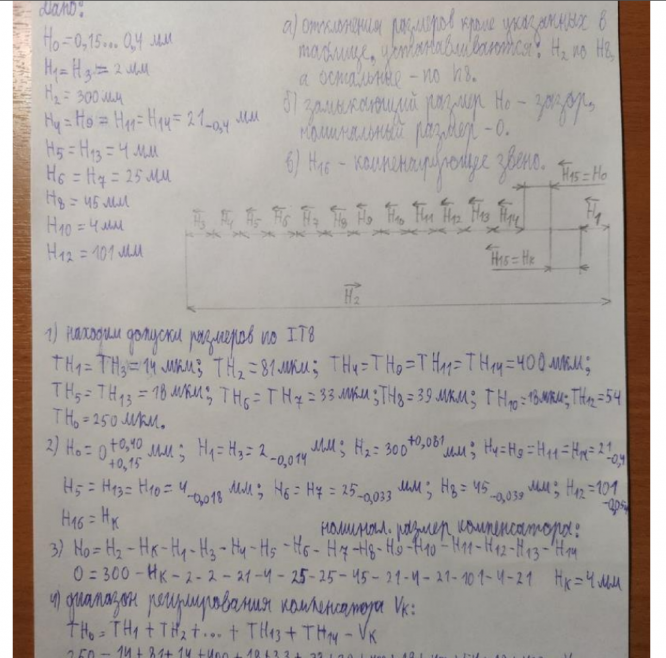 Дано:
H₀=0,15...0,4 мм
H₁=H₃=2 мм
H₂=300 мм
H₄=H₉=H₁₁=H₁₄=21₋₀,₄ мм
H₅=H₁₃=4 мм
H₆=H₇=25 мм
H₈=45 мм
H₁₀=4 мм
H₁₂=101 мм
а) отклонения размеров кроме указанных в
таблице, устанавливаются: H₂ по H8,
а остальные - по h8.
б) замыкающий размер H₀ - зазор,
номинальный размер - 0.
в) H₁₆ - компенсирующее звено.
H₁₅=H₀
H₃ H₄ H₅ H₆ H₇ H₈ H₉ H₁₀ H₁₁ H₁₂ H₁₃ H₁₄ H₁
H₁₅=Hк
H₂
1) находим допуски размеров по IT8
TH₁=TH₃=14 мкм; TH₂=81 мкм; TH₄=TH₉=TH₁₁=TH₁₄=400 мкм;
TH₅=TH₁₃=18 мкм; TH₆=TH₇=33 мкм; TH₈=39 мкм; TH₁₀=18 мкм; TH₁₂=54
TH₀=250 мкм.
2) H₀=0 +0,40 +0,15 мм; H₁=H₃=2₋₀,₀₁₄ мм; H₂=300⁺⁰,⁰⁸¹ мм; H₄=H₉=H₁₁=H₁₄=21₋₀,₄
H₅=H₁₃=H₁₀=4₋₀,₀₁₈ мм; H₆=H₇=25₋₀,₀₃₃ мм; H₈=45₋₀,₀₃₉ мм; H₁₂=101₋₀,₀₅₄
H₁₆=Hк
номинал. размер компенсатора:
3) H₀=H₂-Hк-H₁-H₃-H₄-H₅-H₆-H₇-H₈-H₉-H₁₀-H₁₁-H₁₂-H₁₃-H₁₄
0=300-Hк-2-2-21-4-25-25-45-21-4-21-101-4-21 Hк=4 мм
4) диапазон регулирования компенсатора Vк:
TH₀=TH₁+TH₂+...+TH₁₃+TH₁₄-Vк